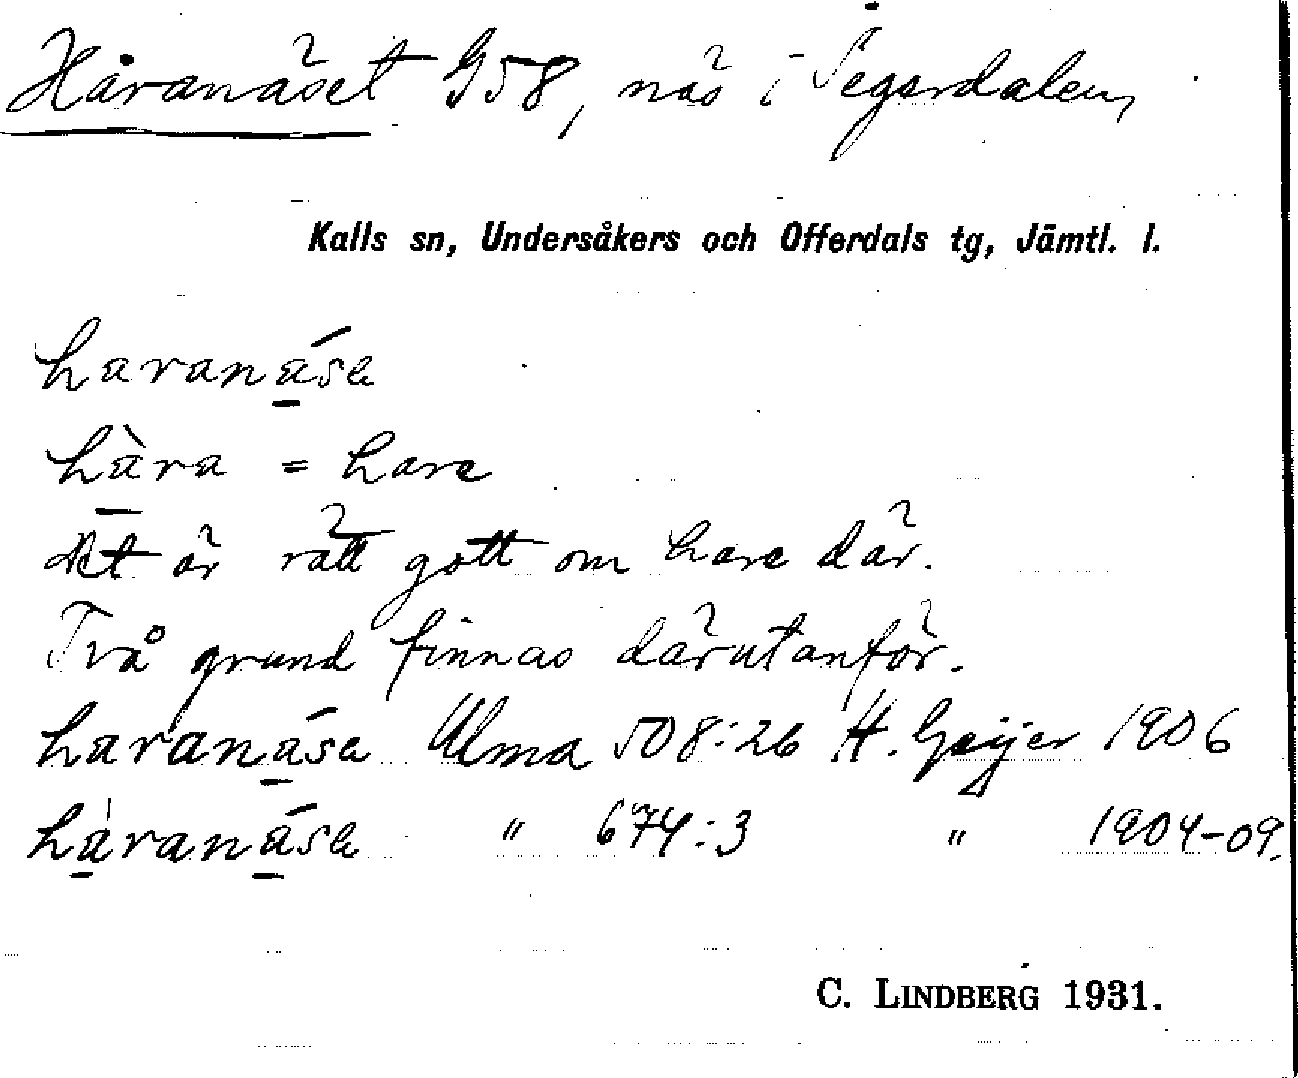 Håranäset G58, näs i Tegsrdalen,
Kalls sn, Undersåkers och Offerdals tg, Jämtl. l.
haranásα
hàra = hare
Det är rätt gott om hare där.
Två grund finnas därutanför.
haranásα Ulma 508:26 H. Geijer 1906
háranásα " 674:3 " 1904-09.
C. LINDBERG 1931.